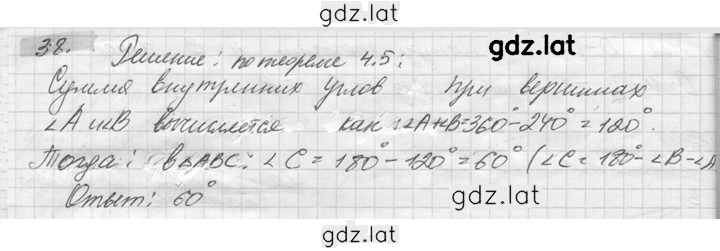 gdz.lat
38. Решение: по теореме 4.5:
gdz.lat
Сумма внутренних углов при вершинах
∠A и ∠B вычисляется как: ∠A+∠B=360°-240°=120°.
gdz.lat
Тогда: в △ABC: ∠C = 180°-120°=60° (∠C = 180°-∠B-∠A
Ответ: 60°
gdz.lat